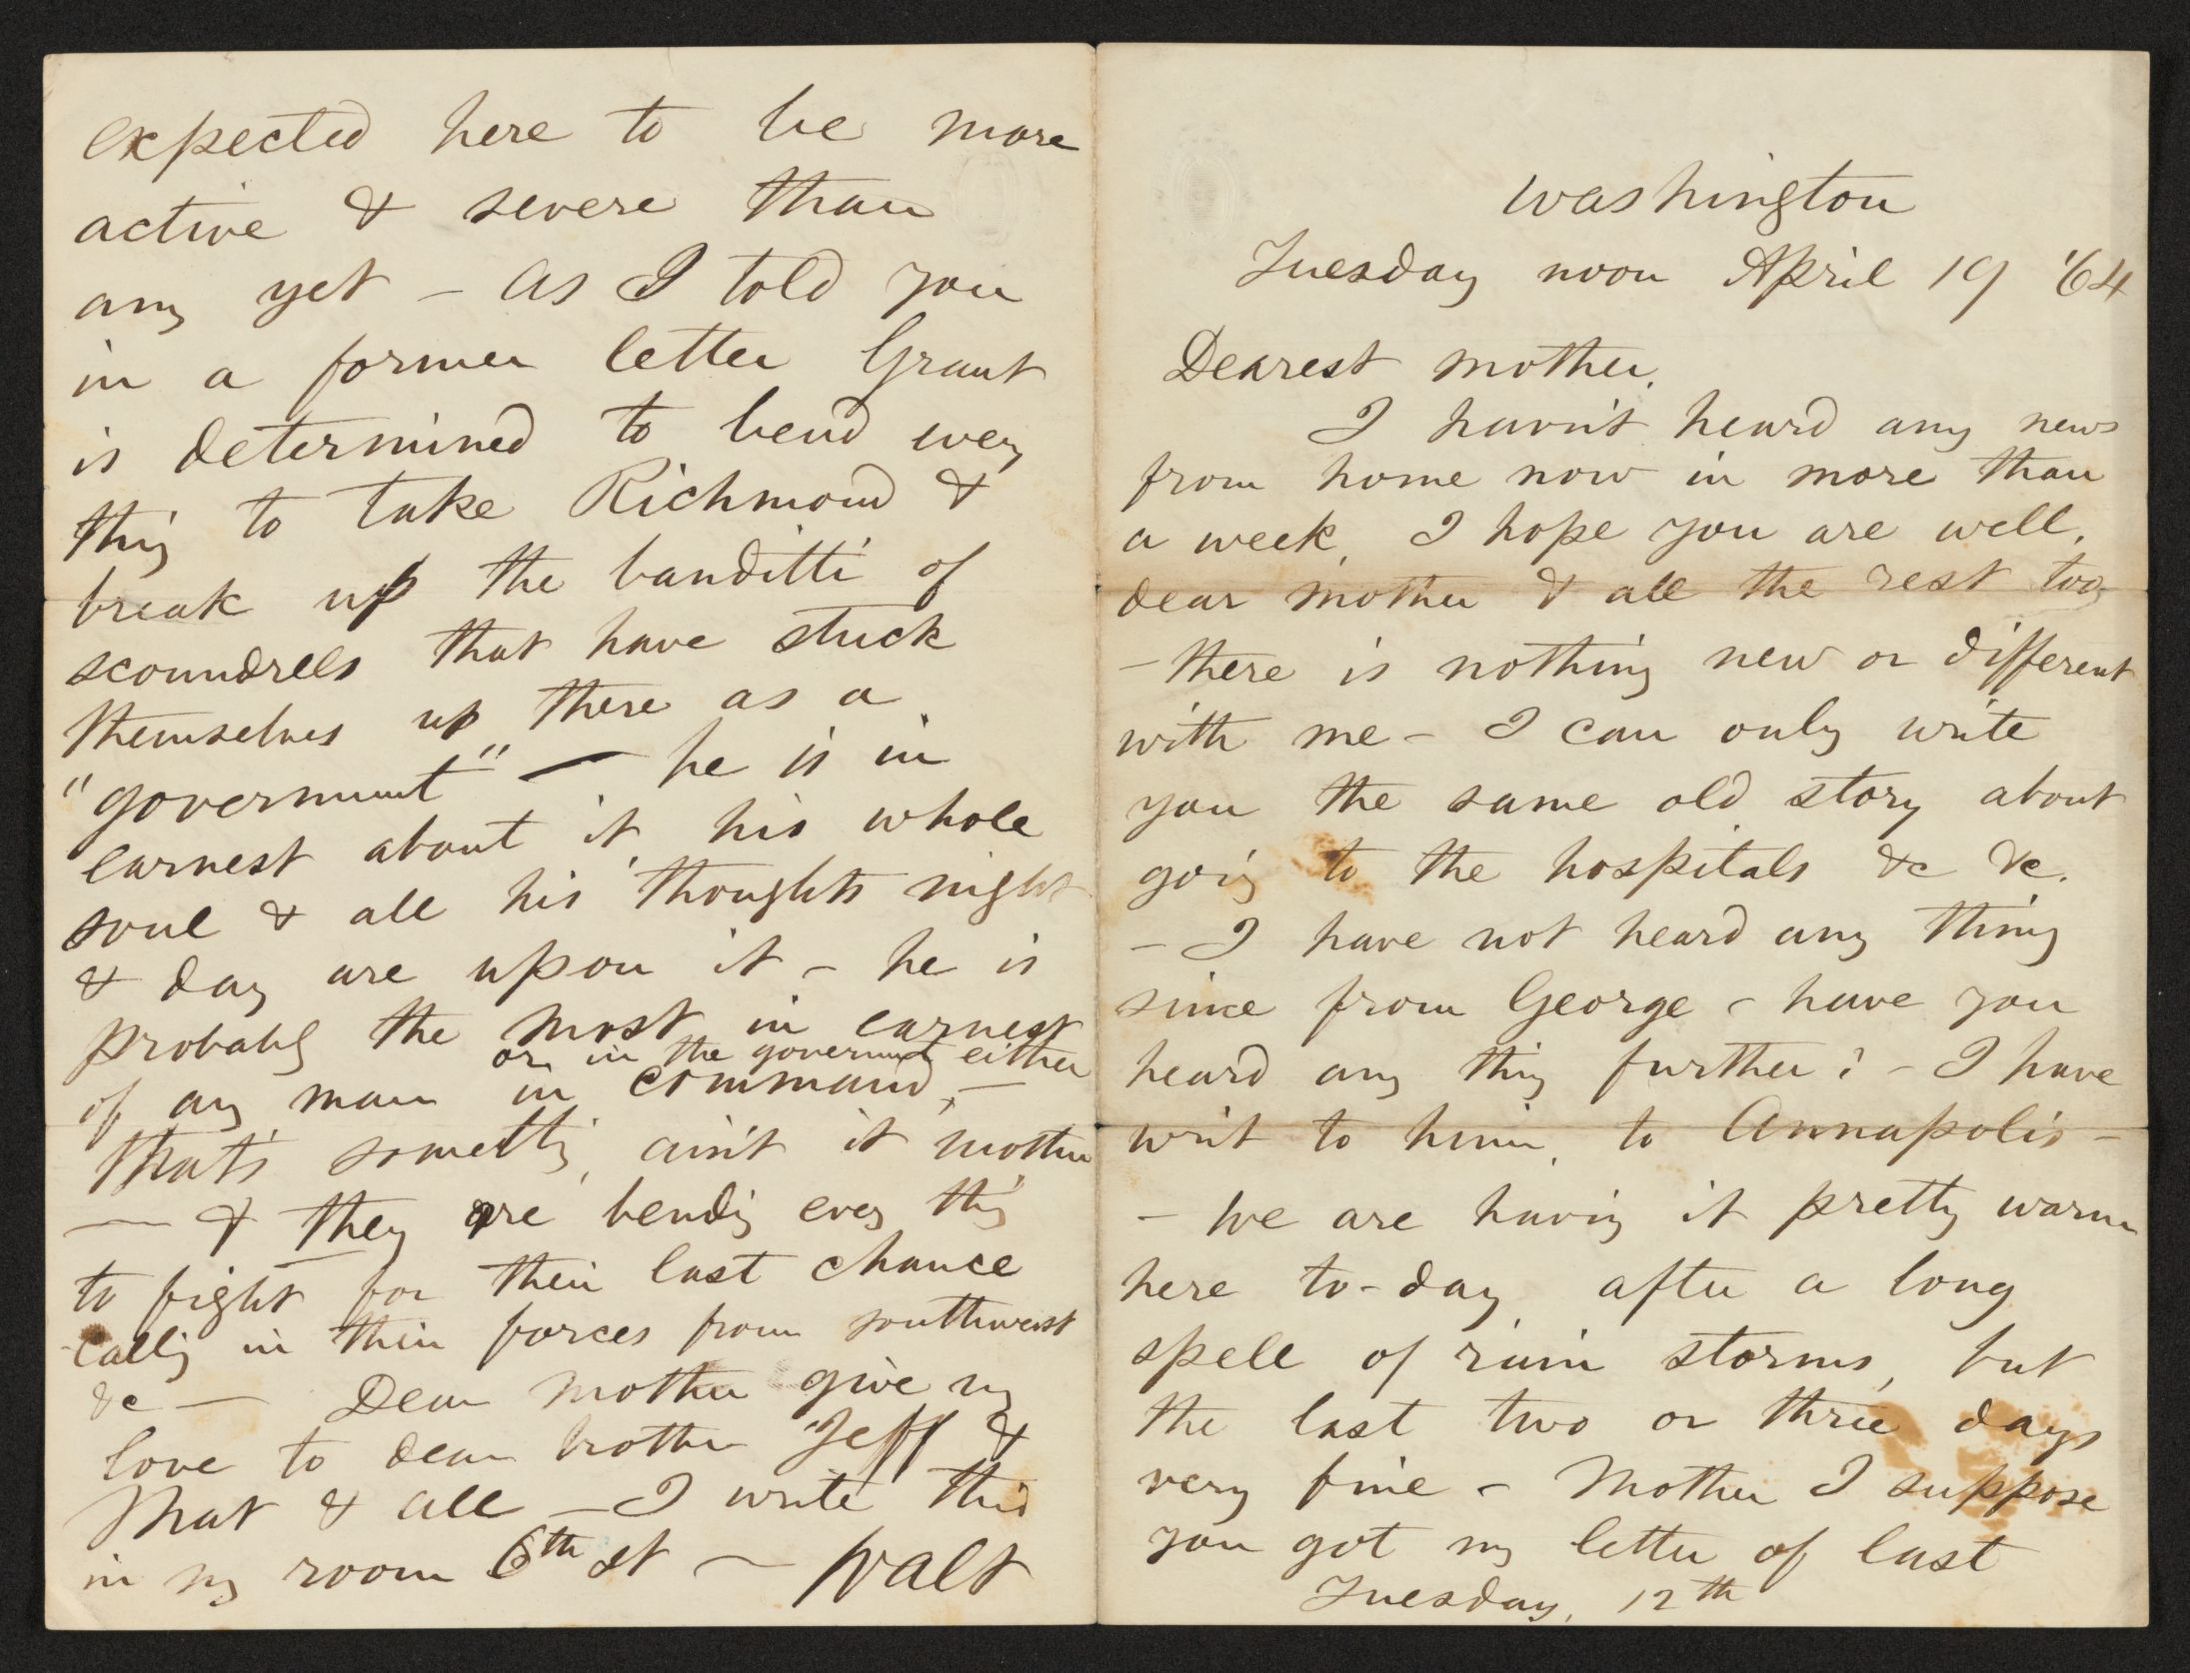 Washington
Tuesday noon April 19 '64
Dearest mother,
I havn't heard any news
from home now in more than
a week, I hope you are well,
dear mother & all the rest too
– there is nothing new or different
with me – I can only write
you the same old story about
going to the hospitals &c &c.
– I have not heard any thing
since from George – have you
heard any thing further? – I have
writ to him, to Annapolis –
– We are having it pretty warm
here to-day, after a long
spell of rain storms, but
the last two or three days
very fine – Mother I suppose
you got my letter of last
Tuesday, 12th
expected here to be more
active & severe than
any yet – As I told you
in a former letter Grant
is determined to bend every
thing to take Richmond &
break up the banditti of
scoundrels that have stuck
themselves up there as a
"government" — he is in
earnest about it, his whole
soul & all his thoughts night
& day are upon it – he is
probably the most in earnest
of any man in command, or in the government either —
that's something, ain't it mother
— & they are bending every thing
to fight for their last chance
calling in their forces from southwest
&c — Dear mother give my
love to dear brother Jeff &
Mat & all – I write this
in my room 6th st — Walt